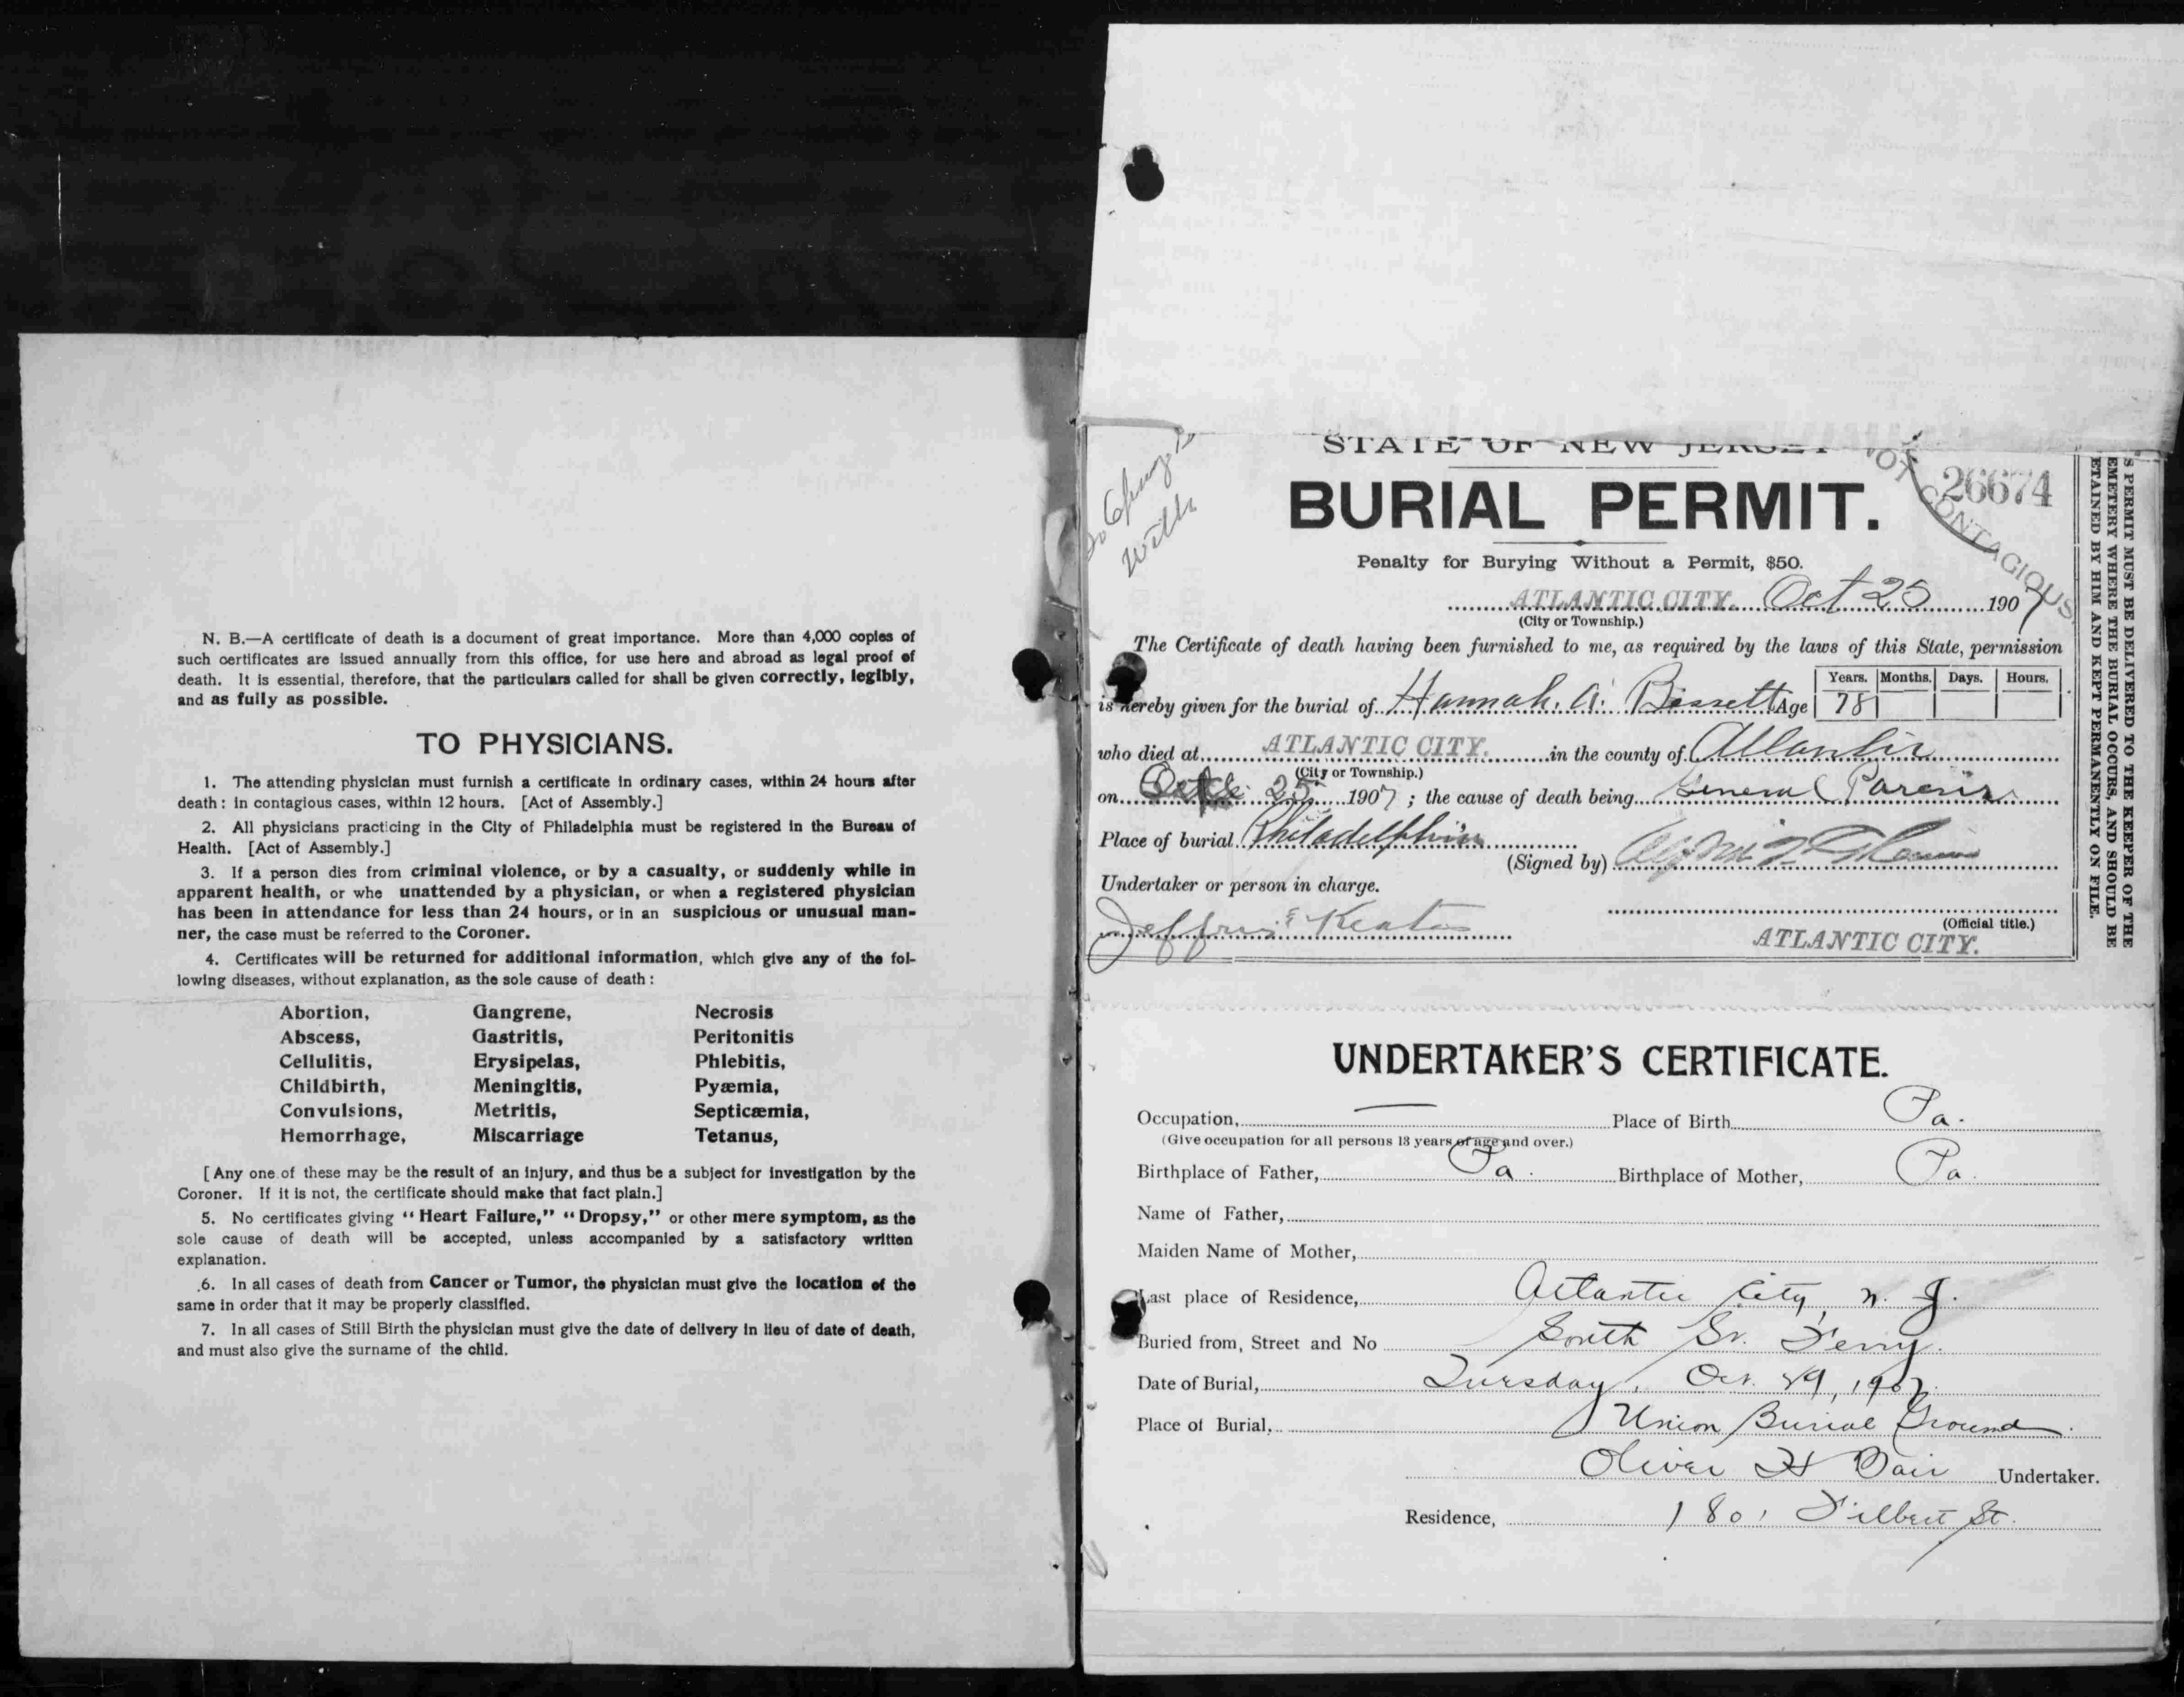 N. B.—A certificate of death is a document of great importance. More than 4,000 copies of
such certificates are issued annually from this office, for use here and abroad as legal proof of
death. It is essential, therefore, that the particulars called for shall be given correctly, legibly,
and as fully as possible.
TO PHYSICIANS.
1. The attending physician must furnish a certificate in ordinary cases, within 24 hours after
death: in contagious cases, within 12 hours. [Act of Assembly.]
2. All physicians practicing in the City of Philadelphia must be registered in the Bureau of
Health. [Act of Assembly.]
3. If a person dies from criminal violence, or by a casualty, or suddenly while in
apparent health, or whe unattended by a physician, or when a registered physician
has been in attendance for less than 24 hours, or in an suspicious or unusual man-
ner, the case must be referred to the Coroner.
4. Certificates will be returned for additional information, which give any of the fol-
lowing diseases, without explanation, as the sole cause of death:
Abortion, Gangrene, Necrosis
Abscess, Gastritis, Peritonitis
Cellulitis, Erysipelas, Phlebitis,
Childbirth, Meningitis, Pyæmia,
Convulsions, Metritis, Septicæmia,
Hemorrhage, Miscarriage Tetanus,
[Any one of these may be the result of an injury, and thus be a subject for investigation by the
Coroner. If it is not, the certificate should make that fact plain.]
5. No certificates giving "Heart Failure," "Dropsy," or other mere symptom, as the
sole cause of death will be accepted, unless accompanied by a satisfactory written
explanation.
6. In all cases of death from Cancer or Tumor, the physician must give the location of the
same in order that it may be properly classified.
7. In all cases of Still Birth the physician must give the date of delivery in lieu of date of death,
and must also give the surname of the child.
STATE OF NEW JERSEY
26674
NOT CONTAGIOUS
BURIAL PERMIT.
Penalty for Burying Without a Permit, $50.
ATLANTIC CITY. Oct 25 1907
(City or Township.)
The Certificate of death having been furnished to me, as required by the laws of this State, permission
Years. Months. Days. Hours.
is hereby given for the burial of Hannah. A. Bissett Age 78
who died at ATLANTIC CITY. in the county of Atlantic
(City or Township.)
on Oct 25 1907; the cause of death being General Paresis
Place of burial Philadelphia
(Signed by)
Undertaker or person in charge.
Jeffries & Keates
(Official title.)
ATLANTIC CITY.
S PERMIT MUST BE DELIVERED TO THE KEEPER OF THE
EMETERY WHERE THE BURIAL OCCURS, AND SHOULD BE
ETAINED BY HIM AND KEPT PERMANENTLY ON FILE.
UNDERTAKER'S CERTIFICATE.
Occupation, — Place of Birth Pa.
(Give occupation for all persons 13 years of age and over.)
Birthplace of Father, Pa. Birthplace of Mother, Pa.
Name of Father,
Maiden Name of Mother,
Last place of Residence, Atlantic City, N. J.
Buried from, Street and No South St. Ferry.
Date of Burial, Tuesday, Oct. 29, 1907.
Place of Burial, Union Burial Ground.
Oliver H Bair Undertaker.
Residence, 1801 Filbert St.